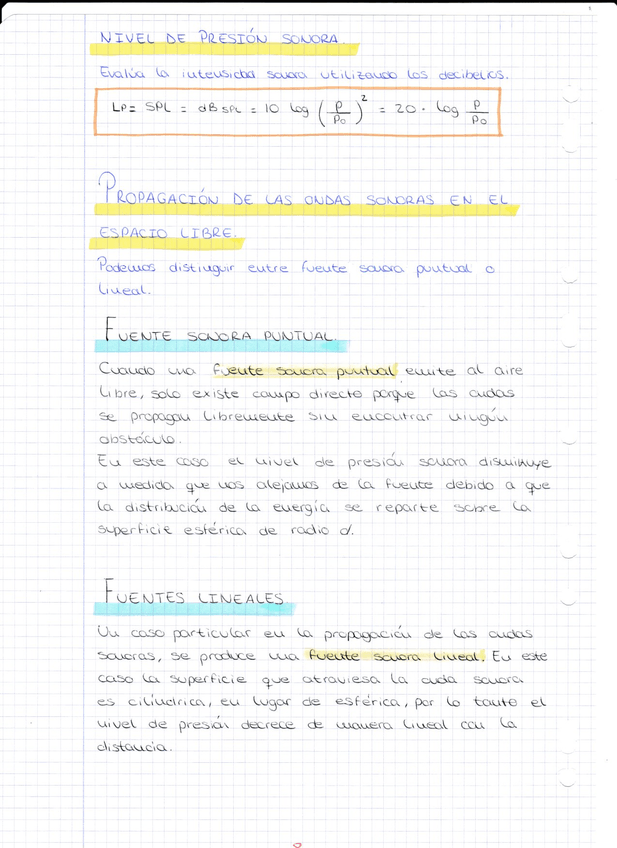 NIVEL DE PRESIÓN SONORA.
Evalúa la intensidad sonora utilizando los decibelios.
Lp = SPL = dB SPL = 10 log (p/p0)² = 20 · log p/p0
PROPAGACIÓN DE LAS ONDAS SONORAS EN EL
ESPACIO LIBRE.
Podemos distinguir entre fuente sonora puntual o
lineal.
FUENTE SONORA PUNTUAL.
Cuando una fuente sonora puntual emite al aire
libre, solo existe campo directo porque las ondas
se propagan libremente sin encontrar ningún
obstáculo.
En este caso el nivel de presión sonora disminuye
a medida que nos alejamos de la fuente debido a que
la distribución de la energía se reparte sobre la
superficie esférica de radio d.
FUENTES LINEALES.
Un caso particular en la propagación de las ondas
sonoras, se produce una fuente sonora lineal. En este
caso la superficie que atraviesa la onda sonora
es cilíndrica, en lugar de esférica, por lo tanto el
nivel de presión decrece de manera lineal con la
distancia.